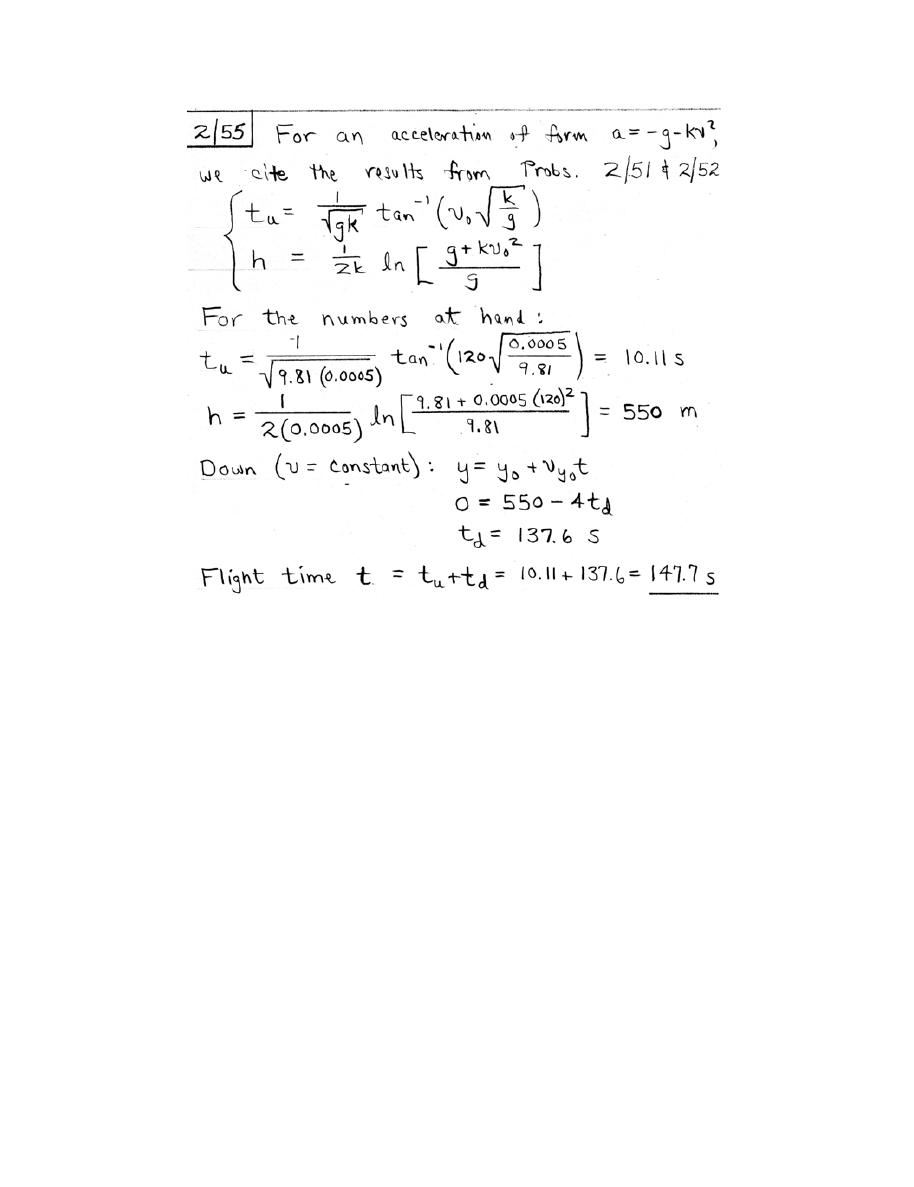 2/55 For an acceleration of form a = -g-kv²,
we cite the results from Probs. 2/51 & 2/52
t_u = 1/√(gk) tan⁻¹ (v₀ √(k/g))
h = 1/2k ln [ (g + kv₀²)/g ]
For the numbers at hand :
t_u = 1/√(9.81 (0.0005)) tan⁻¹ (120 √(0.0005/9.81)) = 10.11 s
h = 1/(2(0.0005)) ln [ (9.81 + 0.0005 (120)²)/9.81 ] = 550 m
Down (v = constant) : y = y₀ + v_y₀ t
0 = 550 - 4t_d
t_d = 137.6 s
Flight time t = t_u + t_d = 10.11 + 137.6 = 147.7 s